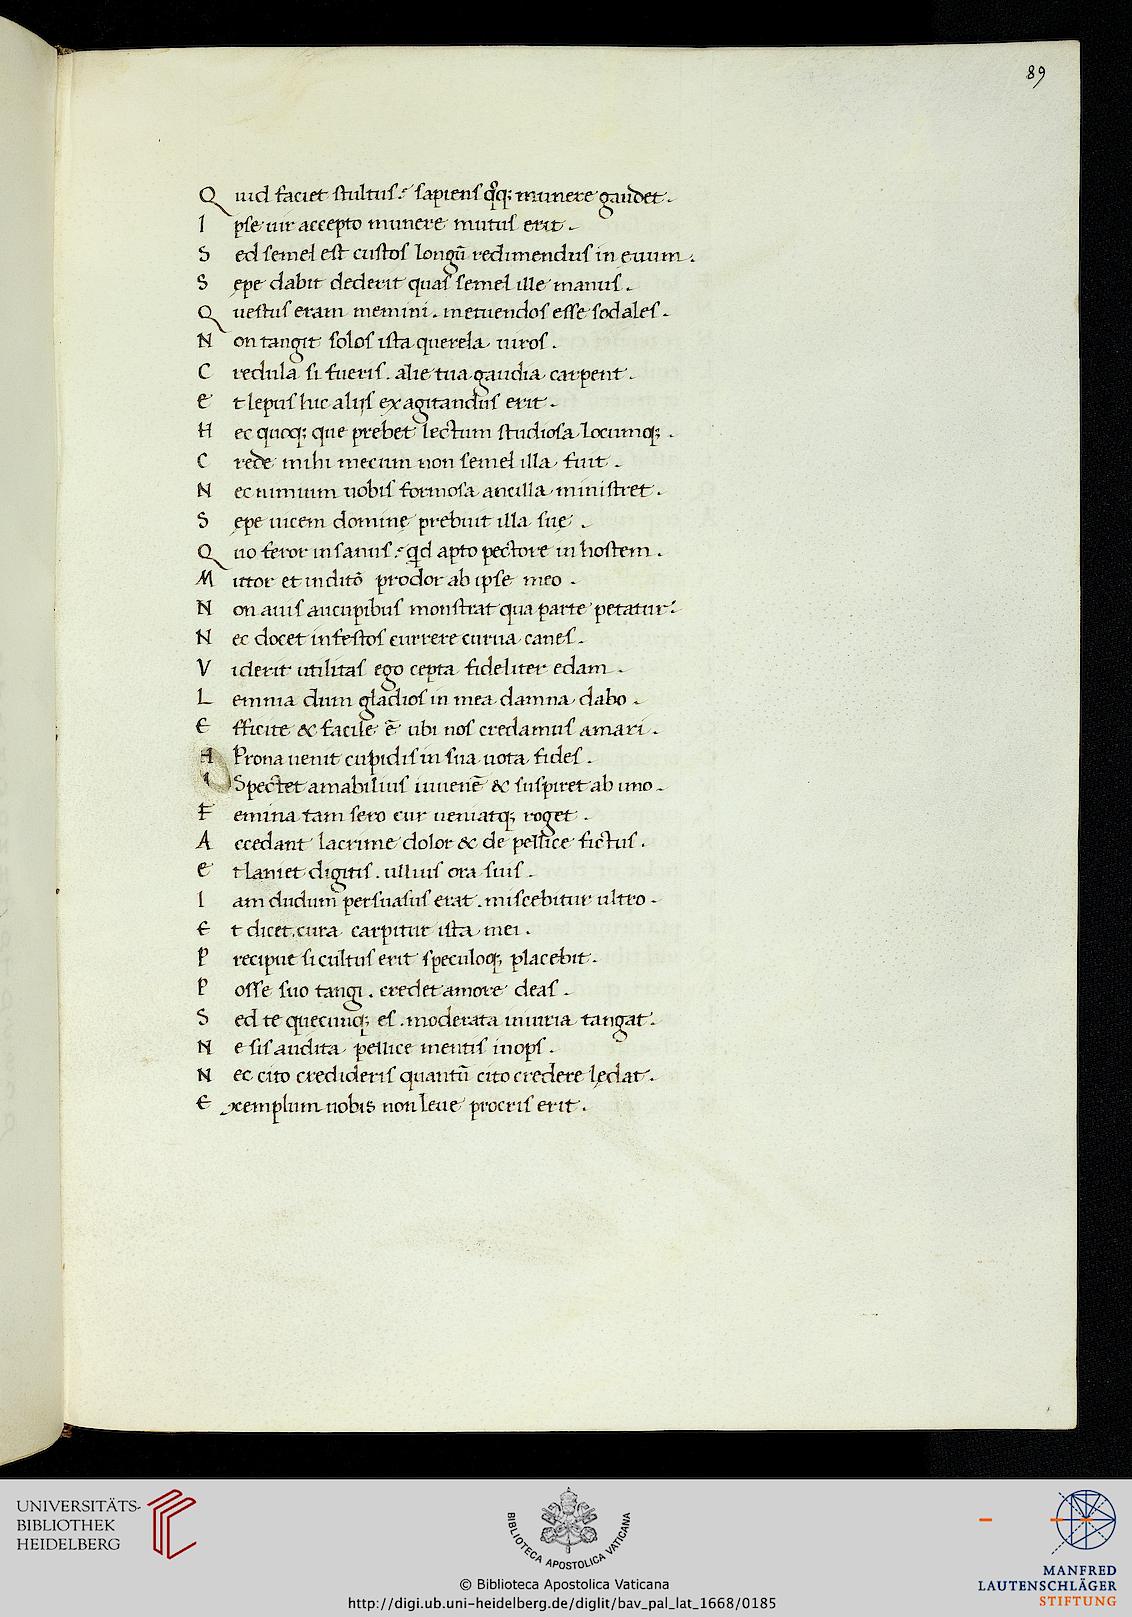 89
Quid faciet stultus? sapiens qͦq; munere gaudet.
Ipse uir accepto munere mutus erit.
Sed semel est custos longū redimendus in euum.
Sępe dabit dederit quas semel ille manus.
Questus eram memini. metuendos esse sodales.
Non tangit solos ista querela uiros.
Credula si fueris. alie tua gaudia carpent.
Et lepus hic alijs exagitandus erit.
Hec quoq; que prebet lectum studiosa locumq;.
Crede mihi mecum non semel illa fuit.
Nec nimium uobis formosa ancilla ministret.
Sępe uicem dominę prebuit illa suę.
Quo feror insanus? qd apto pectore in hostem.
Mittor et inditō prodor ab ipse meo.
Non auis aucupibus monstrat qua parte petatur?
Nec docet infestos currere curua canes.
Viderit utilitas ego cepta fideliter edam.
Lemnia dum gladios in mea damna dabo.
Efficite & facile ē ubi nos credamus amari.
Prona uenit cupidis in sua uota fides.
Spectet amabilius iuuenē & suspiret ab imo.
Femina tam sero cur ueniatq; roget.
Accedant lacrime dolor & de pellice fictus.
Et laniet digitis. ullius ora suis.
Iam dudum persuasus erat. miscebitur ultro.
Et dicet. cura carpitur ista mei.
Precipue si cultus erit speculoq; placebit.
Posse suo tangi. credet amore deas.
Sed te quecunq; es. moderata iniuria tangat.
Ne sis audita pellice mentis inops.
Nec cito credideris quantū cito credere lędat.
Exemplum uobis non leue procris erit.
UNIVERSITÄTS-
BIBLIOTHEK
HEIDELBERG
BIBLIOTECA APOSTOLICA VATICANA
MANFRED
LAUTENSCHLÄGER
STIFTUNG
© Biblioteca Apostolica Vaticana
http://digi.ub.uni-heidelberg.de/diglit/bav_pal_lat_1668/0185